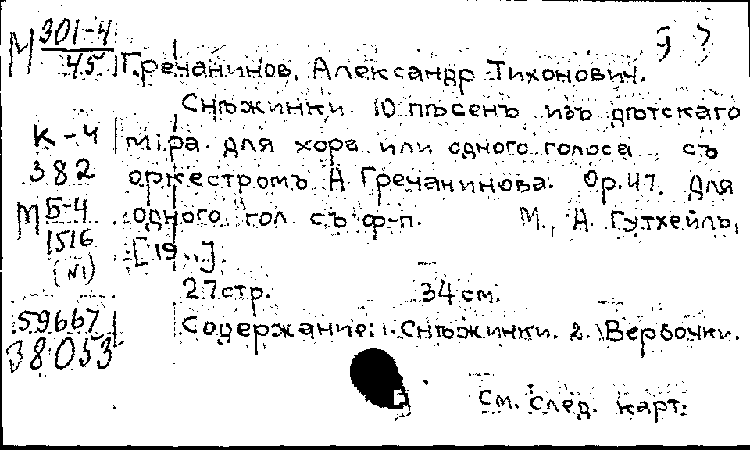 М 301-4
45
Гречанинов, Александр Тихонович.
Снѣжинки 10 пѣсенъ изъ дѣтскаго
К-4
міра для хора или одного голоса съ
382
оркестромъ А Гречанинова. Ор.47. Для
М Б-4
одного гол съ ф-п. М., А. Гутхейль,
1516
[19..].
(№1)
27 стр. 34 см.
59667
Содержание: 1. Снѣжинки. 2. Вербочки.
38053
См. след. карт.